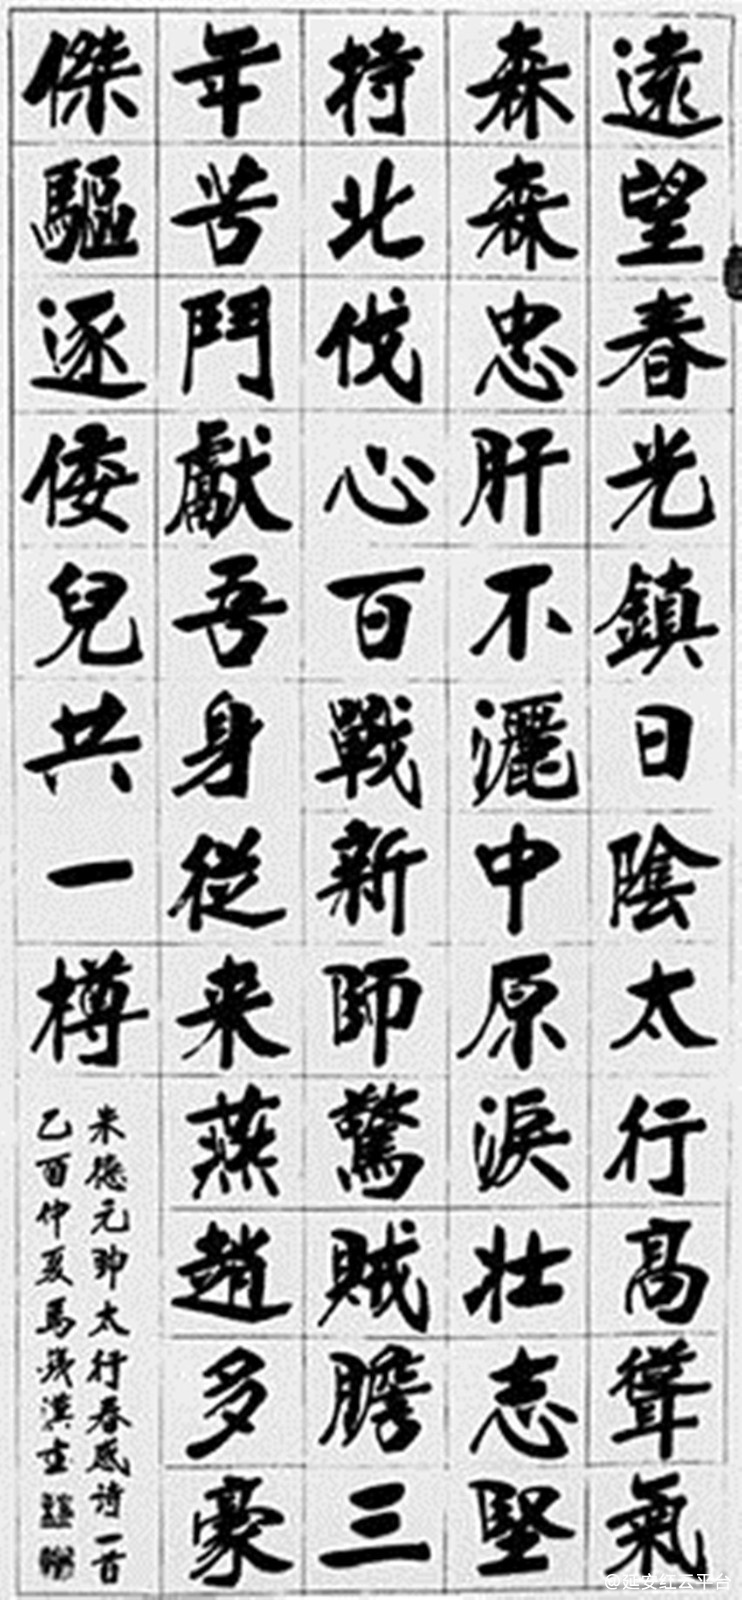 遠望春光鎮日陰太行高聳氣
森森忠肝不灑中原淚壯志堅
持北伐心百戰新師驚賊膽三
年苦鬥獻吾身從来燕趙多豪
傑驅逐倭兒共一樽
朱德元帥太行春感詩一首
乙酉仲夏馬漢書
@延安红云平台